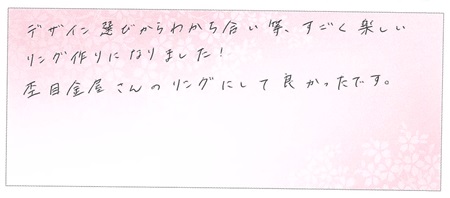 デザイン選びからわかち合い等、すごく楽しい
リング作りになりました！
杢目金屋さんのリングにして良かったです。